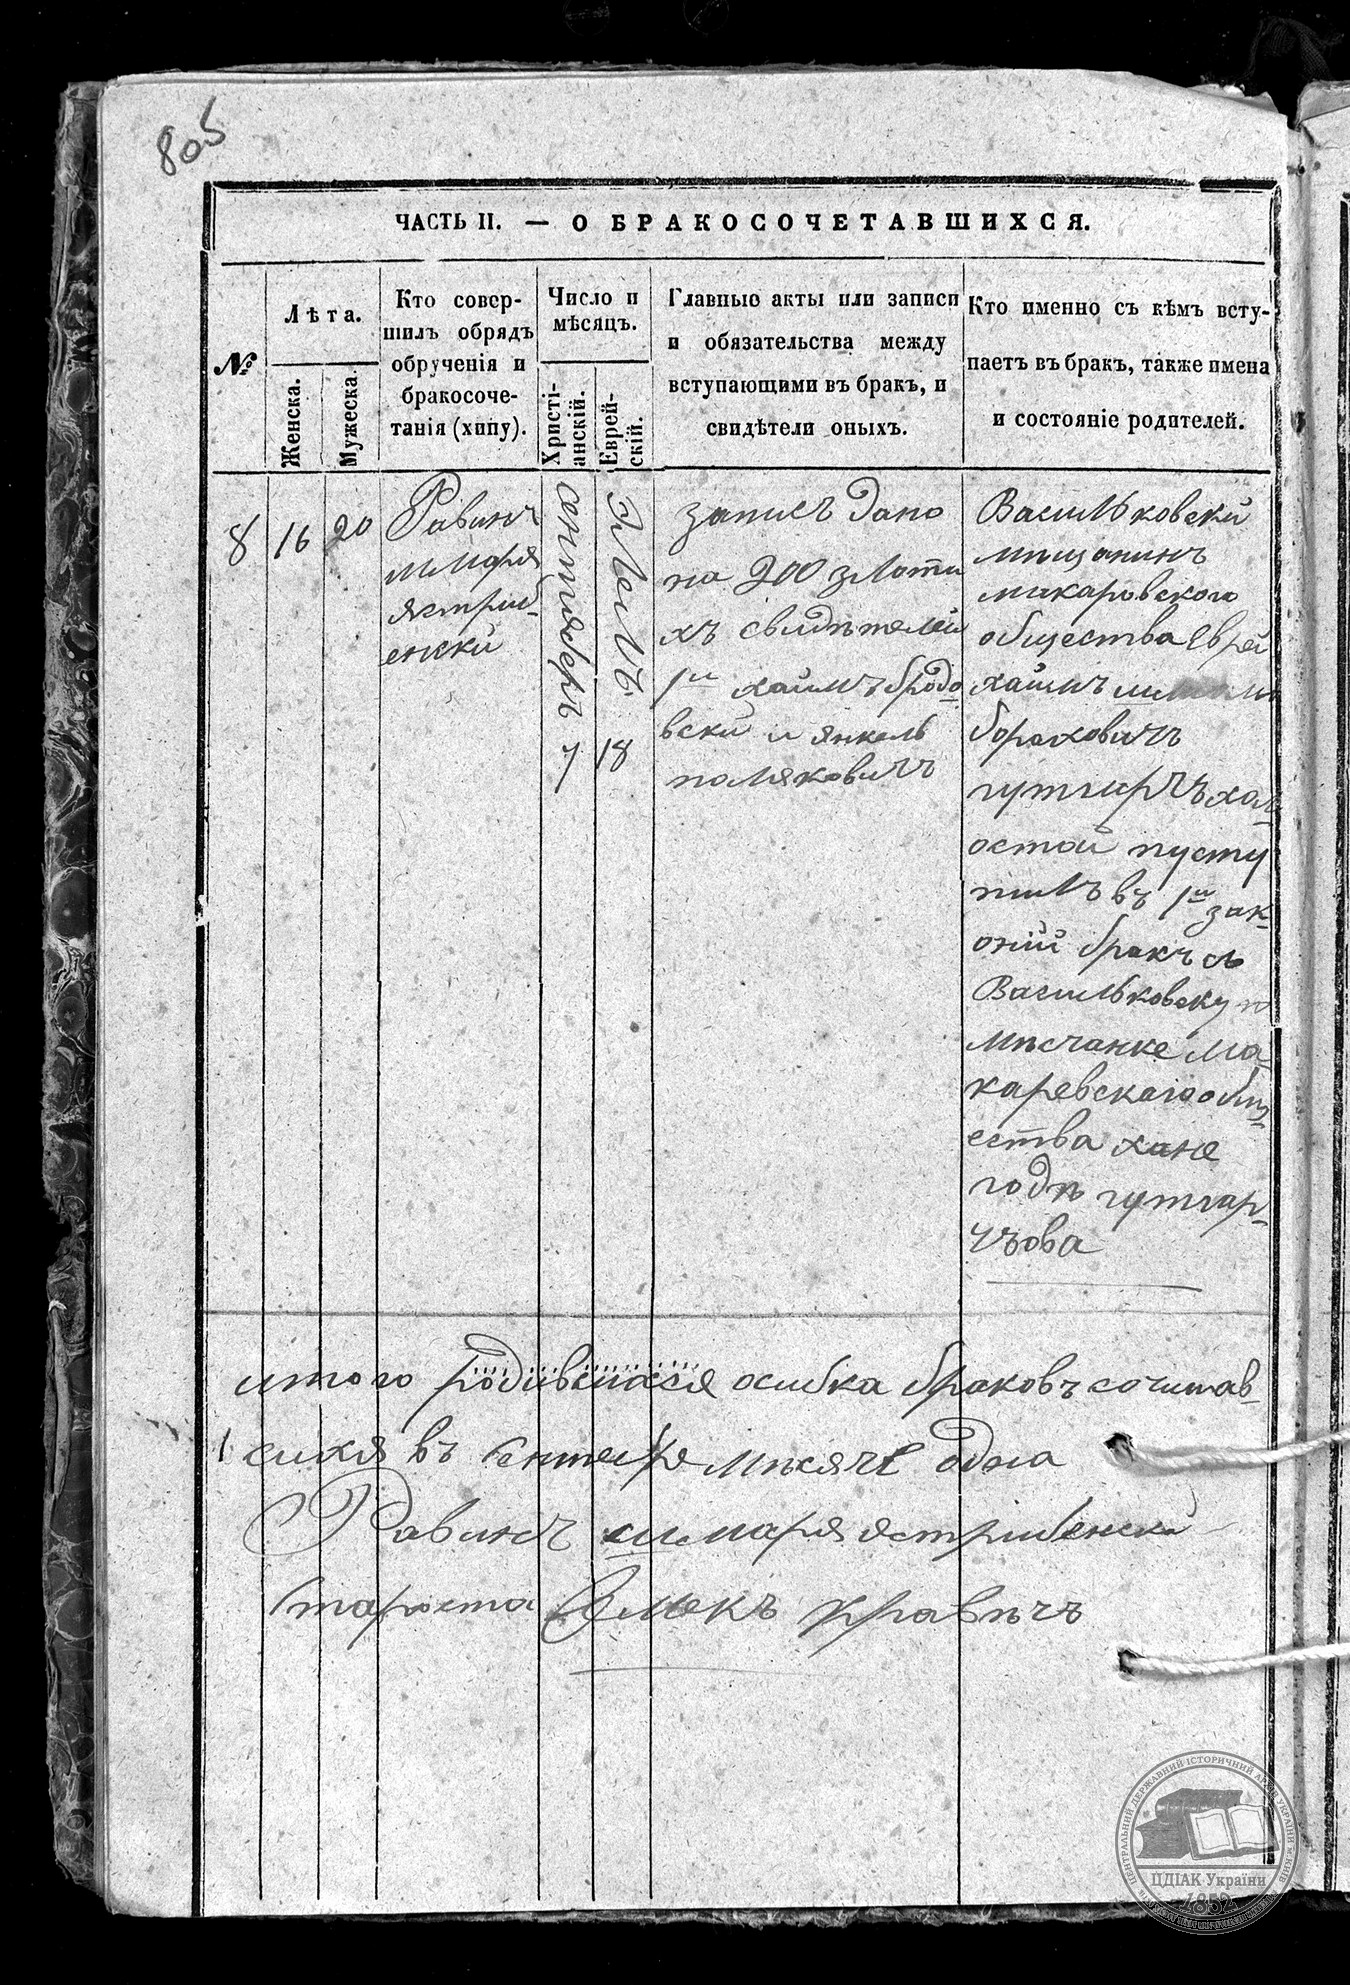 805
ЧАСТЬ II. — О БРАКОСОЧЕТАВШИХСЯ.
№
Лѣта.
Женска.
Мужеска.
Кто совер-
шилъ обрядъ
обрученія и
бракосоче-
танія (хипу).
Число и
мѣсяцъ.
Христі-
анскій.
Еврей-
скій.
Главные акты или записи
и обязательства между
вступающими въ бракъ, и
свидѣтели оныхъ.
Кто именно съ кѣмъ всту-
паетъ въ бракъ, также имена
и состояніе родителей.
8
16
20
Равинъ
шмаря
ястриб-
енски
сентяберъ
7
Элелъ
18
записъ дано
на 200 злоти
хъ свидѣтелей
1й хаимъ бродо-
вски и янкель
поляковичъ
Василковски
мищанинъ
макаровского
общества Еврей
хаимъ
бораховичъ
гутгарцъ хол-
остой пусту
пилъ въ 1й зак-
оний бракъ съ
Василковску
мѣсчанке Ма
каревскаго общ-
ества хане
годѣ гутгар-
цова
итого родившаяся осибка браковъ сочитав-
сихя въ сентебре мѣсяче одна
Равинъ шмаря ястрибенски
староста Элюкъ кравѣчъ
ЦЕНТРАЛЬНИЙ ДЕРЖАВНИЙ ІСТОРИЧНИЙ АРХІВ УКРАЇНИ, м. КИЇВ
ЦДІАК України
1852